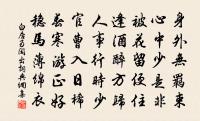 身外無羈束
心中少是非
被花留便住
逢酒醉方歸
人事行時少
官曹入日稀
春寒遊正好
穩馬薄綿衣
白居易閒出詞典網集